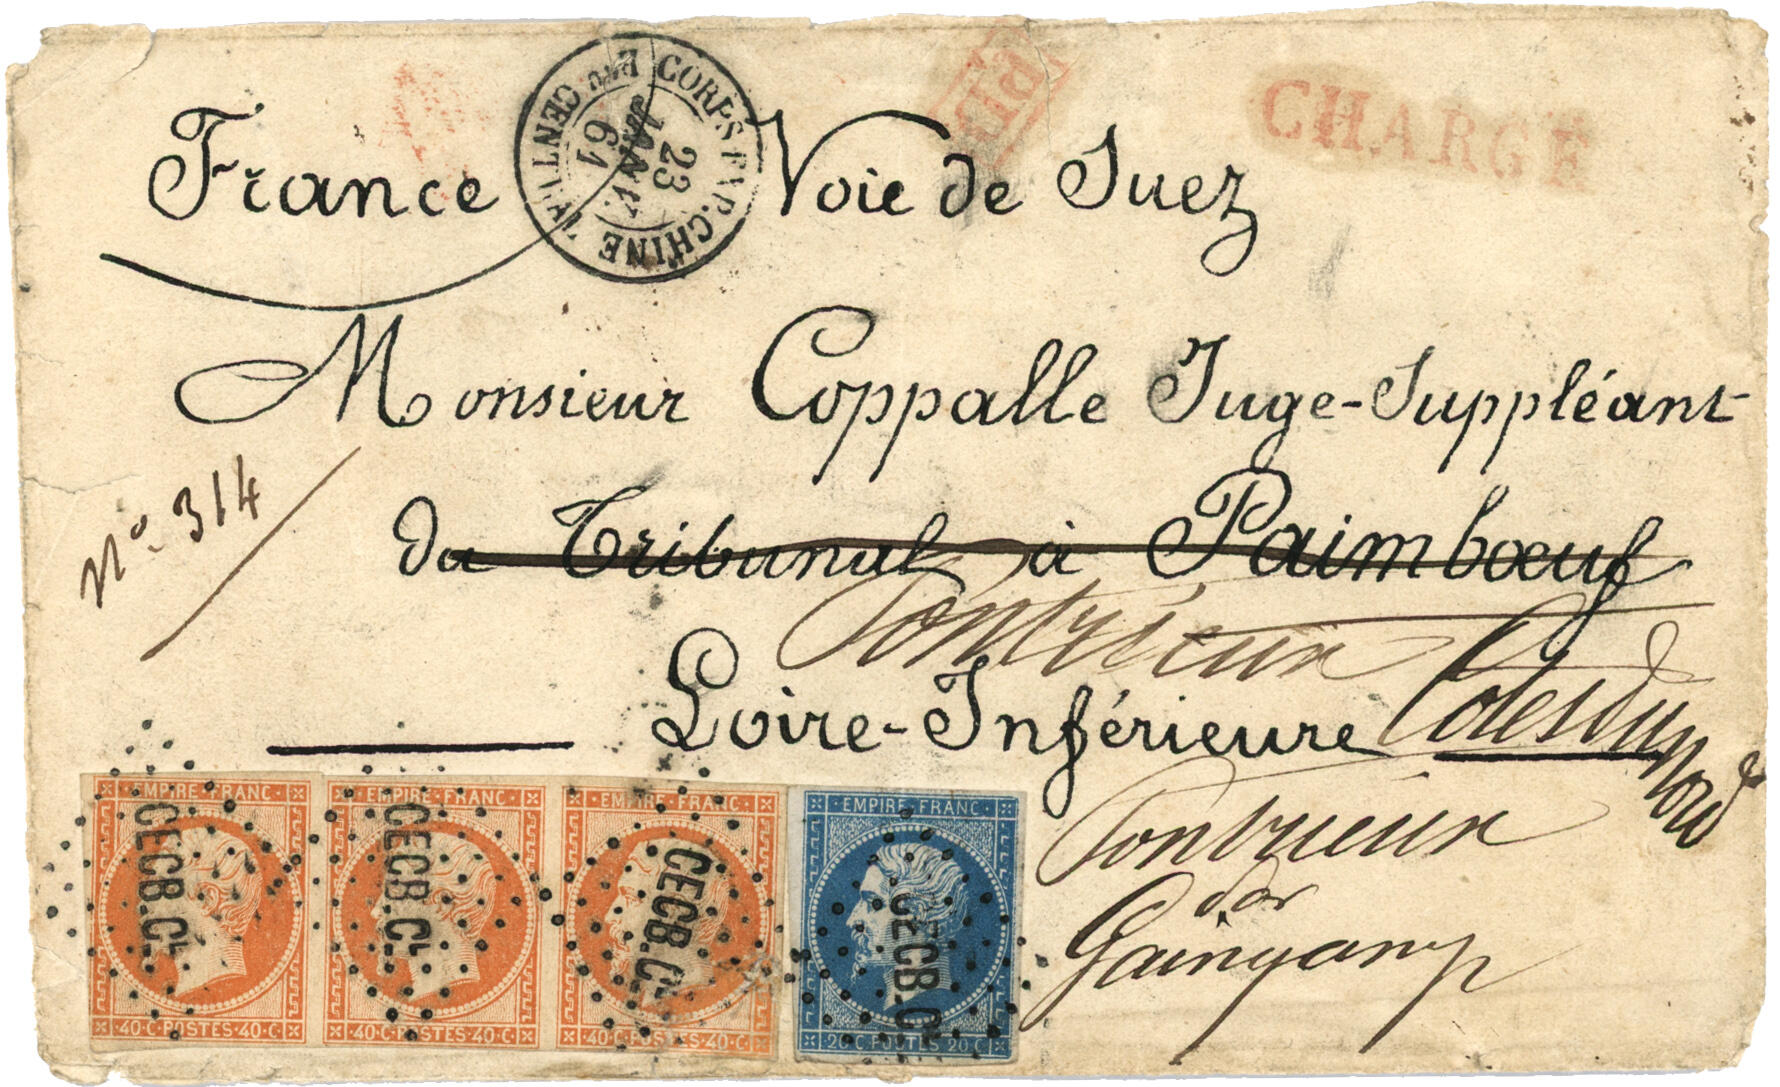 France
Voie de Suez
CORPS EXP. CHINE Bau CENTRAL
23
JANV.
61
PD
CHARGÉ
Monsieur Coppalle Juge-Suppléant
N° 314
du Tribunal à Paimbœuf
Pontrieux
Loire-Inférieure
Côtes du Nord
Pontrieux
par
Gaingamp
EMPIRE FRANC
CECB.CL
40 C POSTES 40 C
EMPIRE FRANC
CECB.CL
40 C POSTES 40 C
EMPIRE FRANC
CECB.CL
40 C POSTES 40 C
EMPIRE FRANC
CECB.CL
20 C POSTES 20 C